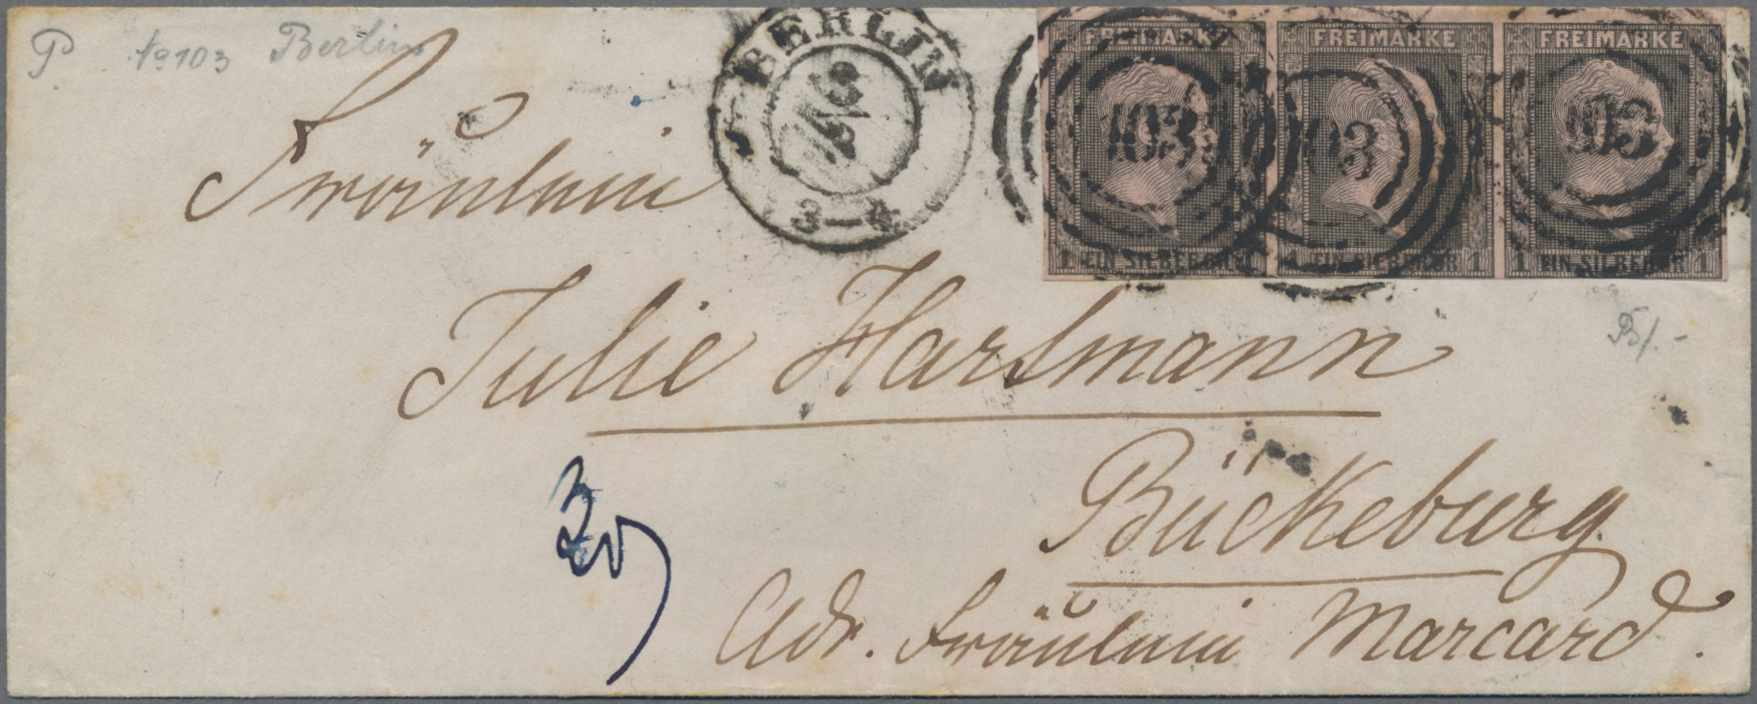 P No 103 Berlin
BERLIN
3-4
FREIMARKE FREIMARKE FREIMARKE
103 103 103
1 EIN SILBERGR 1 1 EIN SILBERGR 1 1 EIN SILBERGR 1
Fräulein
Julie Hartmann
Bückeburg.
Adr. Fräulein Marcard.